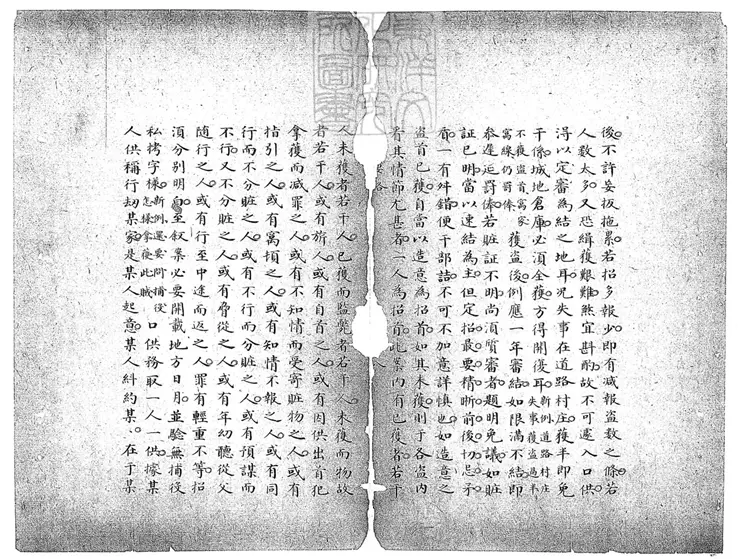 後不許妄扳拖累若招多報少即有減報盜數之條若
人數太多又恐緝獲艱難煞宜斟酌故不可遽入口供
得以定審為結之地耳況失事在道路村庄獲半即免
干係城地倉庫必須全獲方得開復耳新例道路村庄失事獲盜過半
不獲盜首窩家窩線仍罰俸獲盜後例應一年審結如限滿不結即
叅遲延罰俸若賍証不明尚須質審者題明免議如賍
証已明當以速結為主但定招最要精晰前後切忌矛
盾一有舛錯便干部詰不可不加意詳慎也如造意之
盜首已獲自當以造意為招首如其未獲則于各盜內
者其情節尤甚者一人為招首此案內有已獲者若干
人未獲者若干人已獲而監斃者若干人未獲而物故
者若干人或有旅人或有自首之人或有因供出首犯
拿獲而減罪之人或有不知情而受寄賍物之人或有
指引之人或有窩頓之人或有知情不報之人或有同
行而不分賍之人或有不行而分賍之人或有預謀而
不行又不分賍之人或有脅從之人或有年幼聽從父
隨行之人或有行至中途而返之人罪有輕重不等招
須分別明白至叙案必要開載地方日月並驗無捕役
私拷字樣新例還要問捕役怎樣拿獲此賊口供務取一人一供據某
人供稱行刼某家是某人起意某人糾約某、在于某